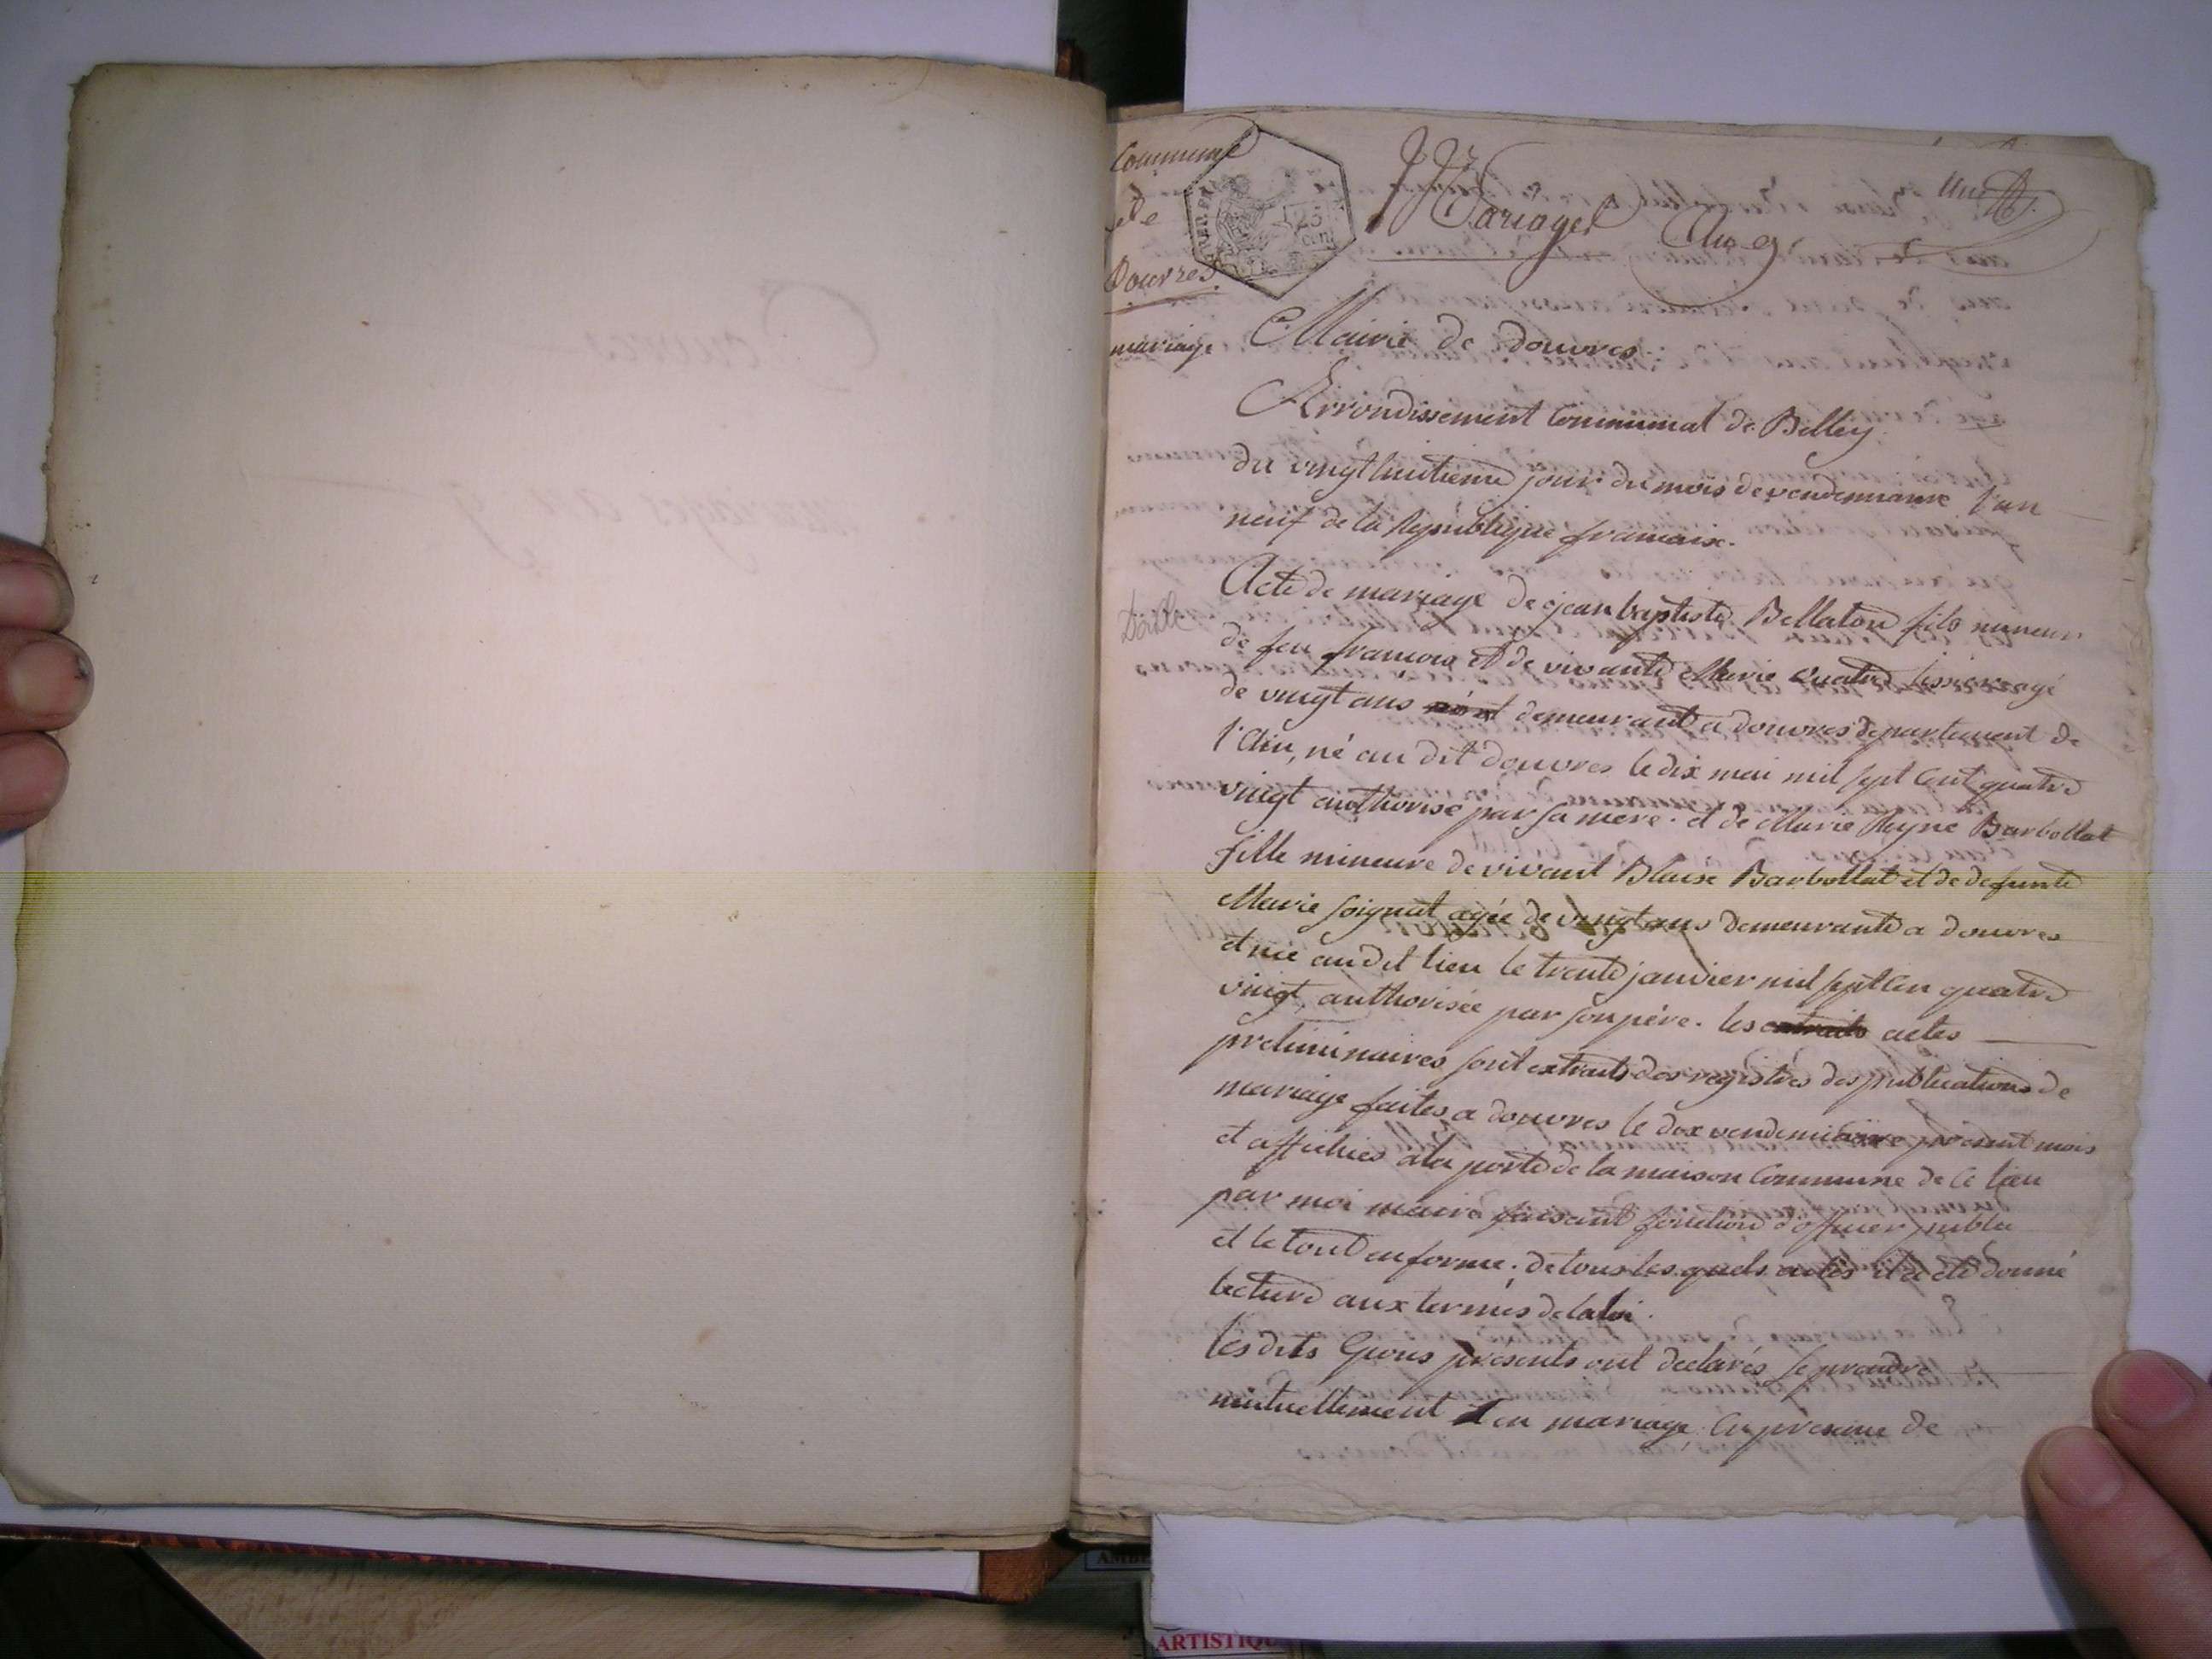 Commune
de
Douvres
mariage
25
cen
Mariages An 9
Une
Mairie de douvres.
Arrondissement Communal de Belley
du vingthuitieme jour du mois de vendemiaire l'an
neuf de la Republique francaise.
Acte de mariage de jean baptiste Bellaton fils mineur
de feu francois et de vivante Marie Quatre tissier agé
de vingt ans demeurant a douvres departement de
l'Ain, né au dit douvres le dix mai mil sept cent quatre
vingt authorisé par sa mere. et de Marie Reyne Barbollat
fille mineure de vivant Blaise Barbollat et de defunte
Marie soignat agée de vingt ans demeurante a douvres
et née audit lieu le trente janvier mil sept cen quatre
vingt, authorisée par son père. les extraits actes
preliminaires sont extraits des registres des publications de
mariage faites a douvres le dix vendemiaire present mois
et affichies a la porte de la maison Commune de ce lieu
par moi maire faisant fonction d'officier public
et le tout en forme. de tous les quels actes il a été donné
lecture aux termes de la loi.
les dits Epoux présents ont declarés se prendre
mutuellement en mariage, en presence de
AMBE
ARTISTIQU